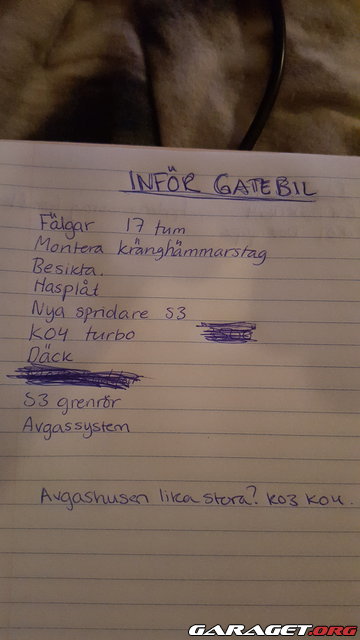 INFÖR GATEBIL
Fälgar 17 tum
Montera kränghämmarstag
Besikta.
Hasplåt
Nya spridare S3
K04 turbo
Däck
S3 grenrör
Avgassystem
Avgashusen lika stora? K03 K04.
GARAGET.ORG